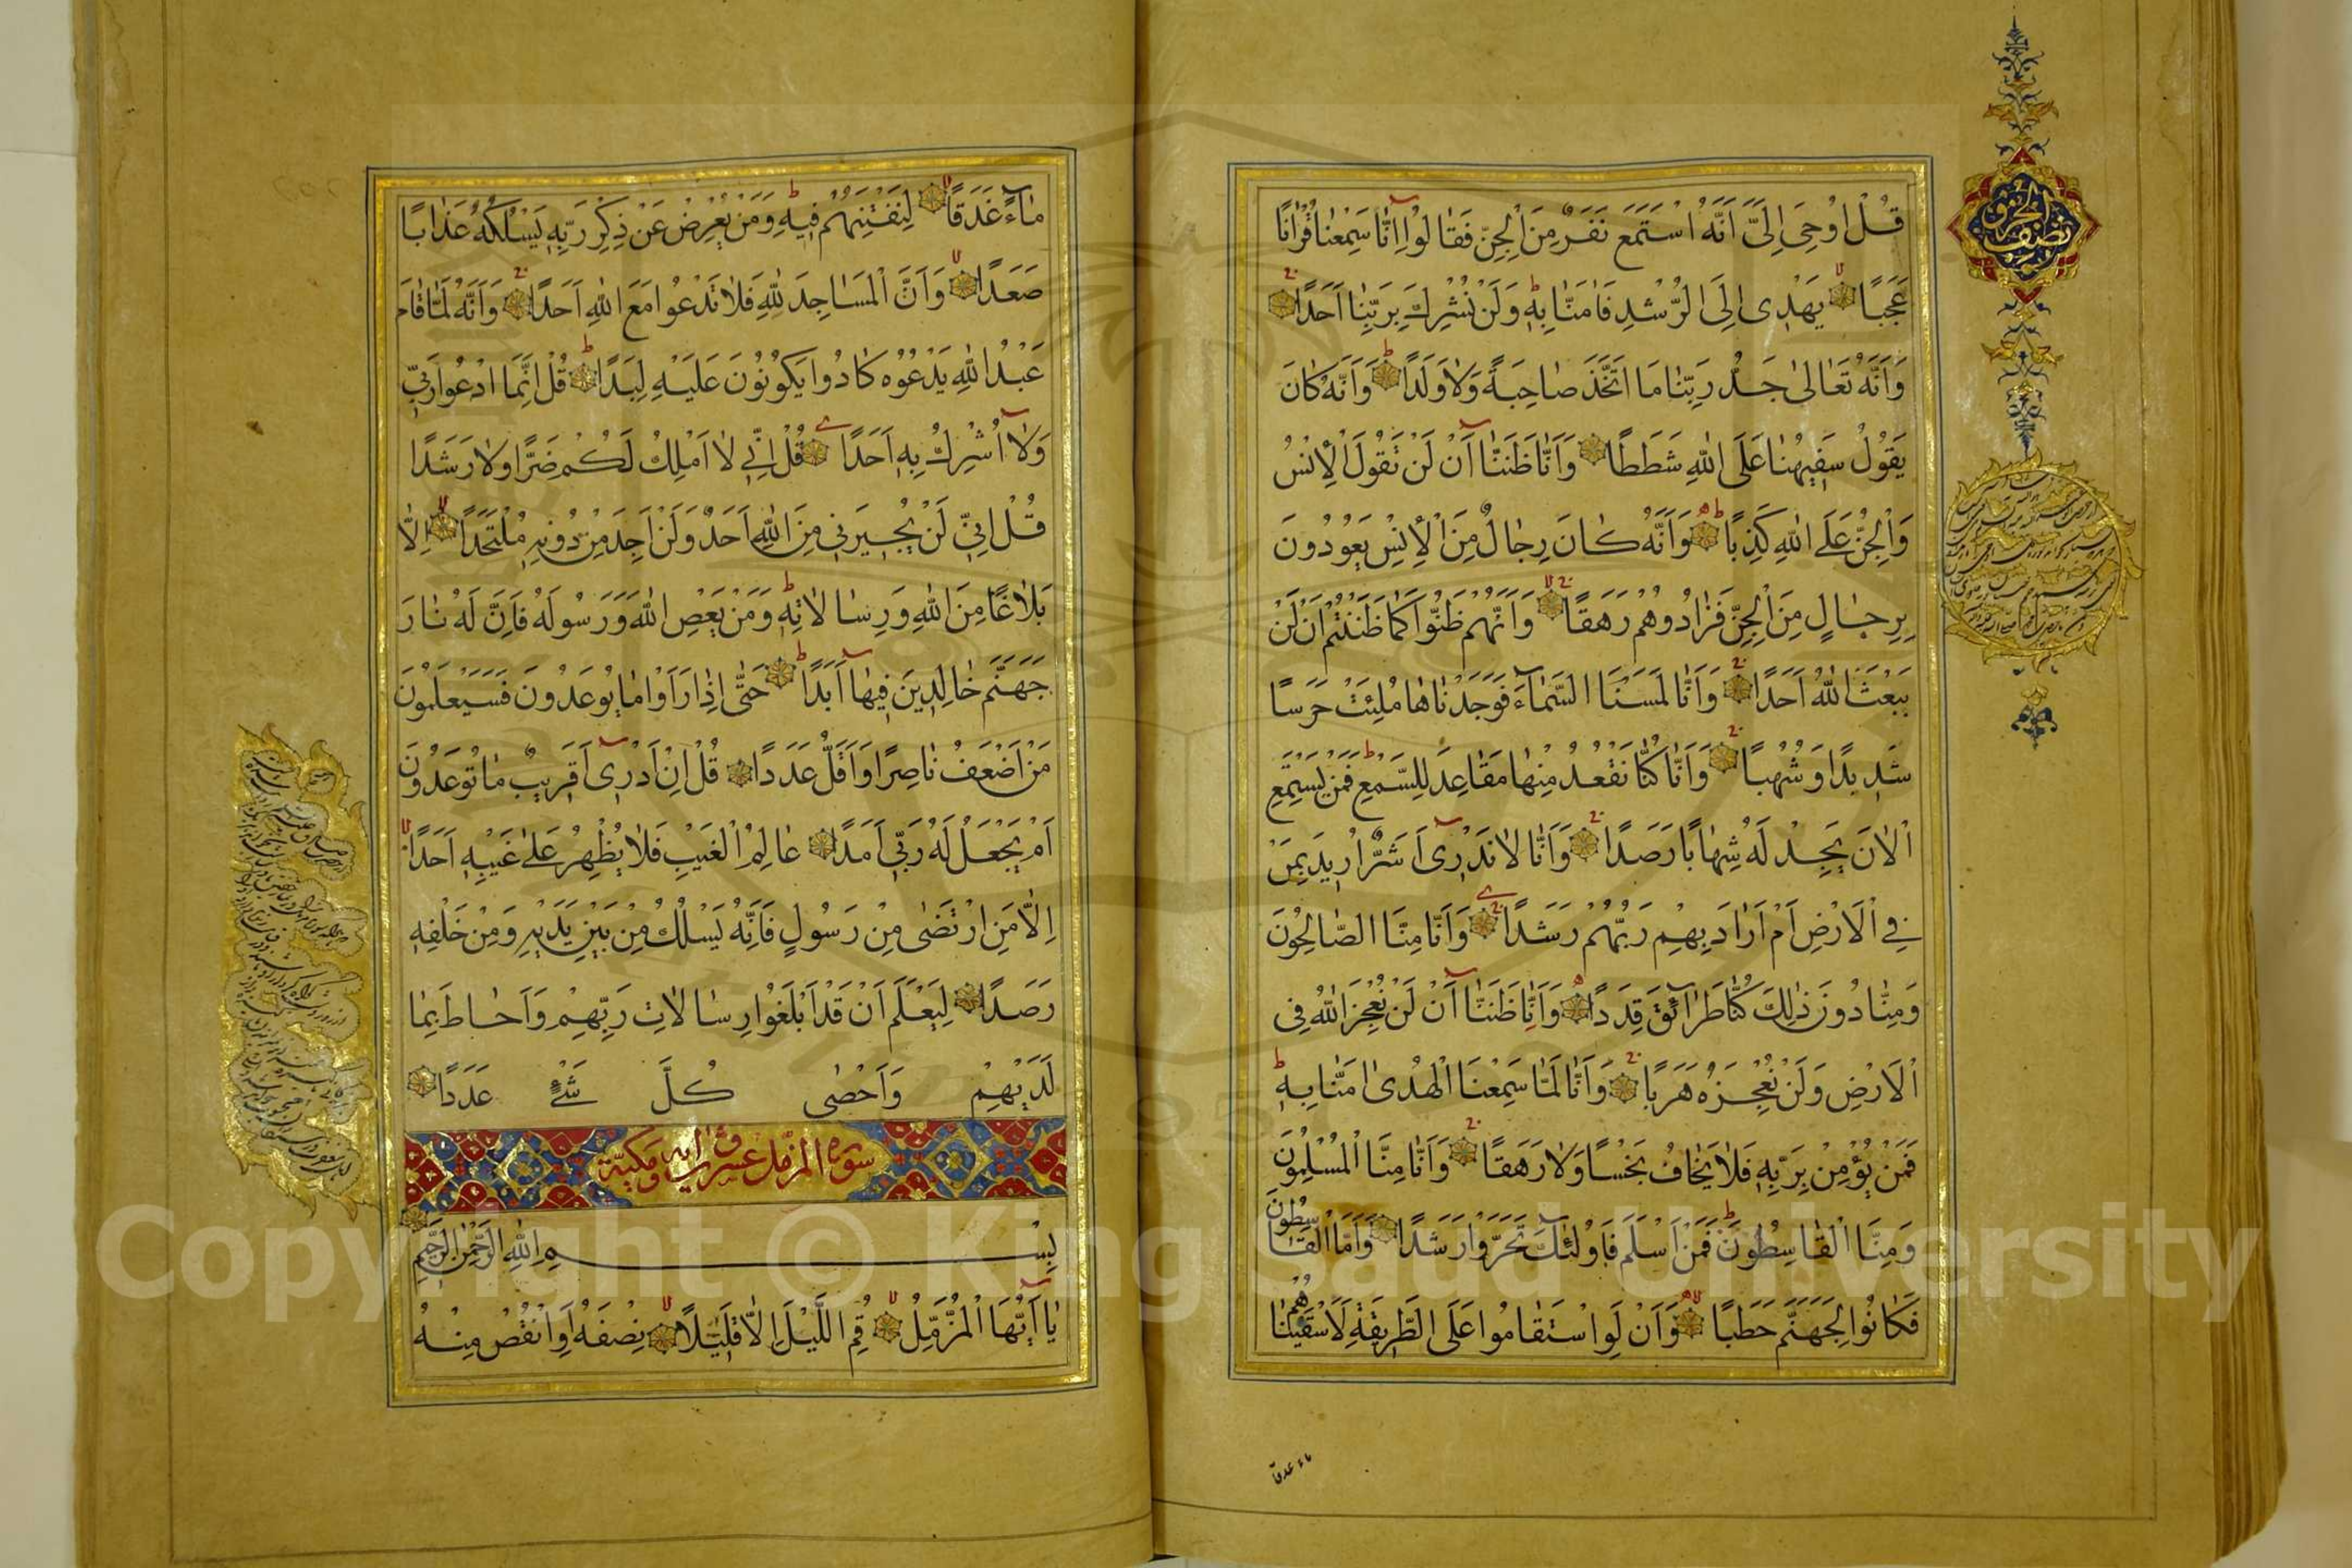 قُلْ اُوحِىَ اِلَىَّ اَنَّهُ اسْتَمَعَ نَفَرٌ مِنَ الْجِنِّ فَقَالُوا اِنَّا سَمِعْنَا قُرْاٰنًا
عَجَبًا يَهْدِى اِلَى الرُّشْدِ فَاٰمَنَّا بِهٖ وَلَنْ نُشْرِكَ بِرَبِّنَا اَحَدًا
وَاَنَّهُ تَعَالىٰ جَدُّ رَبِّنَا مَا اتَّخَذَ صَاحِبَةً وَلَا وَلَدًا وَاَنَّهُ كَانَ
يَقُولُ سَفِيهُنَا عَلَى اللّٰهِ شَطَطًا وَاَنَّا ظَنَنَّا اَنْ لَنْ تَقُولَ الْاِنْسُ
وَالْجِنُّ عَلَى اللّٰهِ كَذِبًا وَاَنَّهُ كَانَ رِجَالٌ مِنَ الْاِنْسِ يَعُوذُونَ
بِرِجَالٍ مِنَ الْجِنِّ فَزَادُوهُمْ رَهَقًا وَاَنَّهُمْ ظَنُّوا كَمَا ظَنَنْتُمْ اَنْ لَنْ
يَبْعَثَ اللّٰهُ اَحَدًا وَاَنَّا لَمَسْنَا السَّمَاءَ فَوَجَدْنَاهَا مُلِئَتْ حَرَسًا
شَدِيدًا وَشُهُبًا وَاَنَّا كُنَّا نَقْعُدُ مِنْهَا مَقَاعِدَ لِلسَّمْعِ فَمَنْ يَسْتَمِعِ
الْاٰنَ يَجِدْ لَهُ شِهَابًا رَصَدًا وَاَنَّا لَا نَدْرِى اَشَرٌّ اُرِيدَ بِمَنْ
فِى الْاَرْضِ اَمْ اَرَادَ بِهِمْ رَبُّهُمْ رَشَدًا وَاَنَّا مِنَّا الصَّالِحُونَ
وَمِنَّا دُونَ ذٰلِكَ كُنَّا طَرَائِقَ قِدَدًا وَاَنَّا ظَنَنَّا اَنْ لَنْ نُعْجِزَ اللّٰهَ فِى
الْاَرْضِ وَلَنْ نُعْجِزَهُ هَرَبًا وَاَنَّا لَمَّا سَمِعْنَا الْهُدٰى اٰمَنَّا بِهٖ
فَمَنْ يُؤْمِنْ بِرَبِّهٖ فَلَا يَخَافُ بَخْسًا وَلَا رَهَقًا وَاَنَّا مِنَّا الْمُسْلِمُونَ
وَمِنَّا الْقَاسِطُونَ فَمَنْ اَسْلَمَ فَاُولٰئِكَ تَحَرَّوْا رَشَدًا وَاَمَّا الْقَاسِطُونَ
فَكَانُوا لِجَهَنَّمَ حَطَبًا وَاَنْ لَوِ اسْتَقَامُوا عَلَى الطَّرِيقَةِ لَاَسْقَيْنَاهُمْ
ماء غدقا
مَاءً غَدَقًا لِنَفْتِنَهُمْ فِيهِ وَمَنْ يُعْرِضْ عَنْ ذِكْرِ رَبِّهٖ يَسْلُكْهُ عَذَابًا
صَعَدًا وَاَنَّ الْمَسَاجِدَ لِلّٰهِ فَلَا تَدْعُوا مَعَ اللّٰهِ اَحَدًا وَاَنَّهُ لَمَّا قَامَ
عَبْدُ اللّٰهِ يَدْعُوهُ كَادُوا يَكُونُونَ عَلَيْهِ لِبَدًا قُلْ اِنَّمَا اَدْعُوا رَبِّى
وَلَا اُشْرِكُ بِهٖ اَحَدًا قُلْ اِنِّى لَا اَمْلِكُ لَكُمْ ضَرًّا وَلَا رَشَدًا
قُلْ اِنِّى لَنْ يُجِيرَنِى مِنَ اللّٰهِ اَحَدٌ وَلَنْ اَجِدَ مِنْ دُونِهٖ مُلْتَحَدًا اِلَّا
بَلَاغًا مِنَ اللّٰهِ وَرِسَالَاتِهٖ وَمَنْ يَعْصِ اللّٰهَ وَرَسُولَهُ فَاِنَّ لَهُ نَارَ
جَهَنَّمَ خَالِدِينَ فِيهَا اَبَدًا حَتّٰى اِذَا رَاَوْا مَا يُوعَدُونَ فَسَيَعْلَمُونَ
مَنْ اَضْعَفُ نَاصِرًا وَاَقَلُّ عَدَدًا قُلْ اِنْ اَدْرِى اَقَرِيبٌ مَا تُوعَدُونَ
اَمْ يَجْعَلُ لَهُ رَبِّى اَمَدًا عَالِمُ الْغَيْبِ فَلَا يُظْهِرُ عَلىٰ غَيْبِهٖ اَحَدًا
اِلَّا مَنِ ارْتَضٰى مِنْ رَسُولٍ فَاِنَّهُ يَسْلُكُ مِنْ بَيْنِ يَدَيْهِ وَمِنْ خَلْفِهٖ
رَصَدًا لِيَعْلَمَ اَنْ قَدْ اَبْلَغُوا رِسَالَاتِ رَبِّهِمْ وَاَحَاطَ بِمَا
لَدَيْهِمْ وَاَحْصٰى كُلَّ شَىْءٍ عَدَدًا
سورة المزمل عشرون اية مكية
بِسْمِ اللّٰهِ الرَّحْمٰنِ الرَّحِيمِ
يَا اَيُّهَا الْمُزَّمِّلُ قُمِ اللَّيْلَ اِلَّا قَلِيلًا نِصْفَهُ اَوِ انْقُصْ مِنْهُ
Copyright © King Saud University